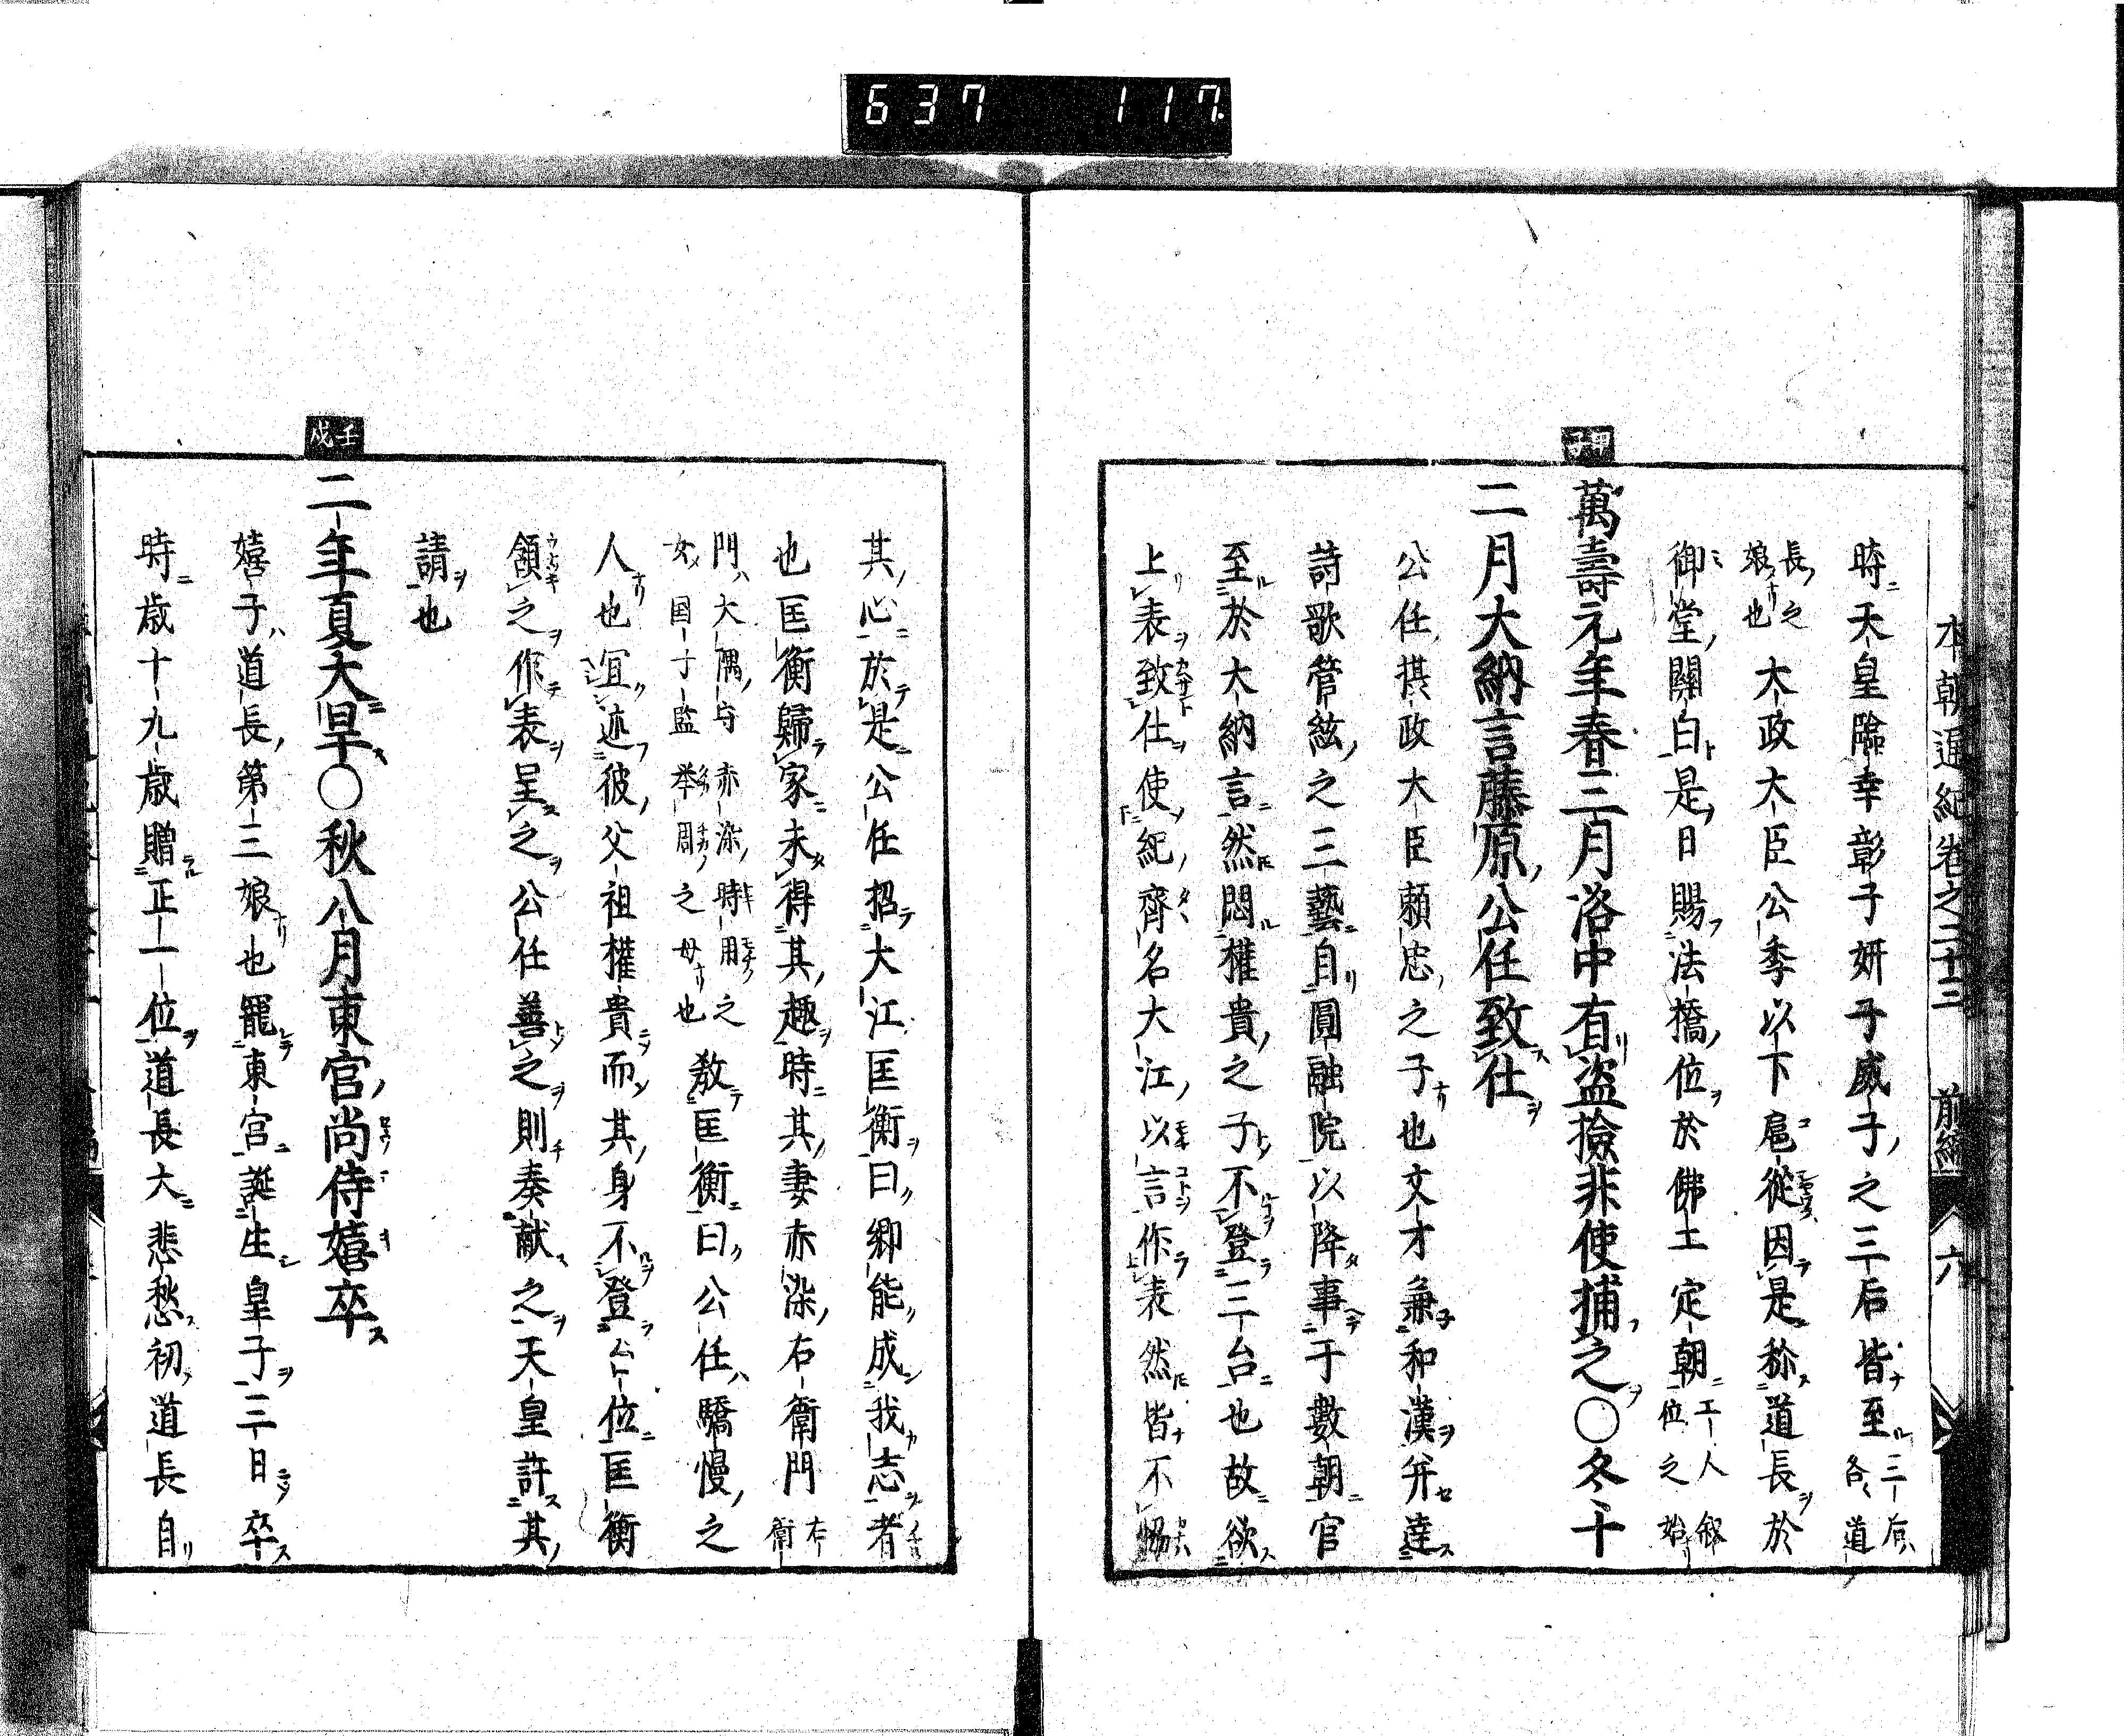 637 117.
本朝通紀卷之二十三 前編 六
時天皇臨幸彰子妍子威子之三后皆至三后各道
長之娘也太政大臣公季以下扈從因是称道長於
御堂關白是日賜法橋位於佛工定朝工人叙位之始
甲子
萬壽元年春三月洛中有盗撿非使捕之〇冬十
二月大納言藤原公任致仕
公任攝政大臣頼忠之子也文才兼和漢并達
詩歌管絃之三藝自圓融院以降事于數朝官
至於大納言然悶權貴之子不登三台也故欲
上表致仕使紀齊名大江以言作表然皆不協
其心於是公任招大江匡衡曰卿能成我志者
也匡衡歸家未得其趣時其妻赤染右衛門右衛
門大隅守赤染時用之女国子監举周之母也教匡衡曰公任驕慢之
人也宜述彼父祖權貴而其身不登台位匡衡
頷之作表呈之公任善之則奏献之天皇許其
請也
壬戌
二年夏大旱〇秋八月東宮尚侍嬉卒
嬉子道長第三娘也寵東宮誕生皇子三日卒
時歳十九歳贈正一位道長大悲愁初道長自